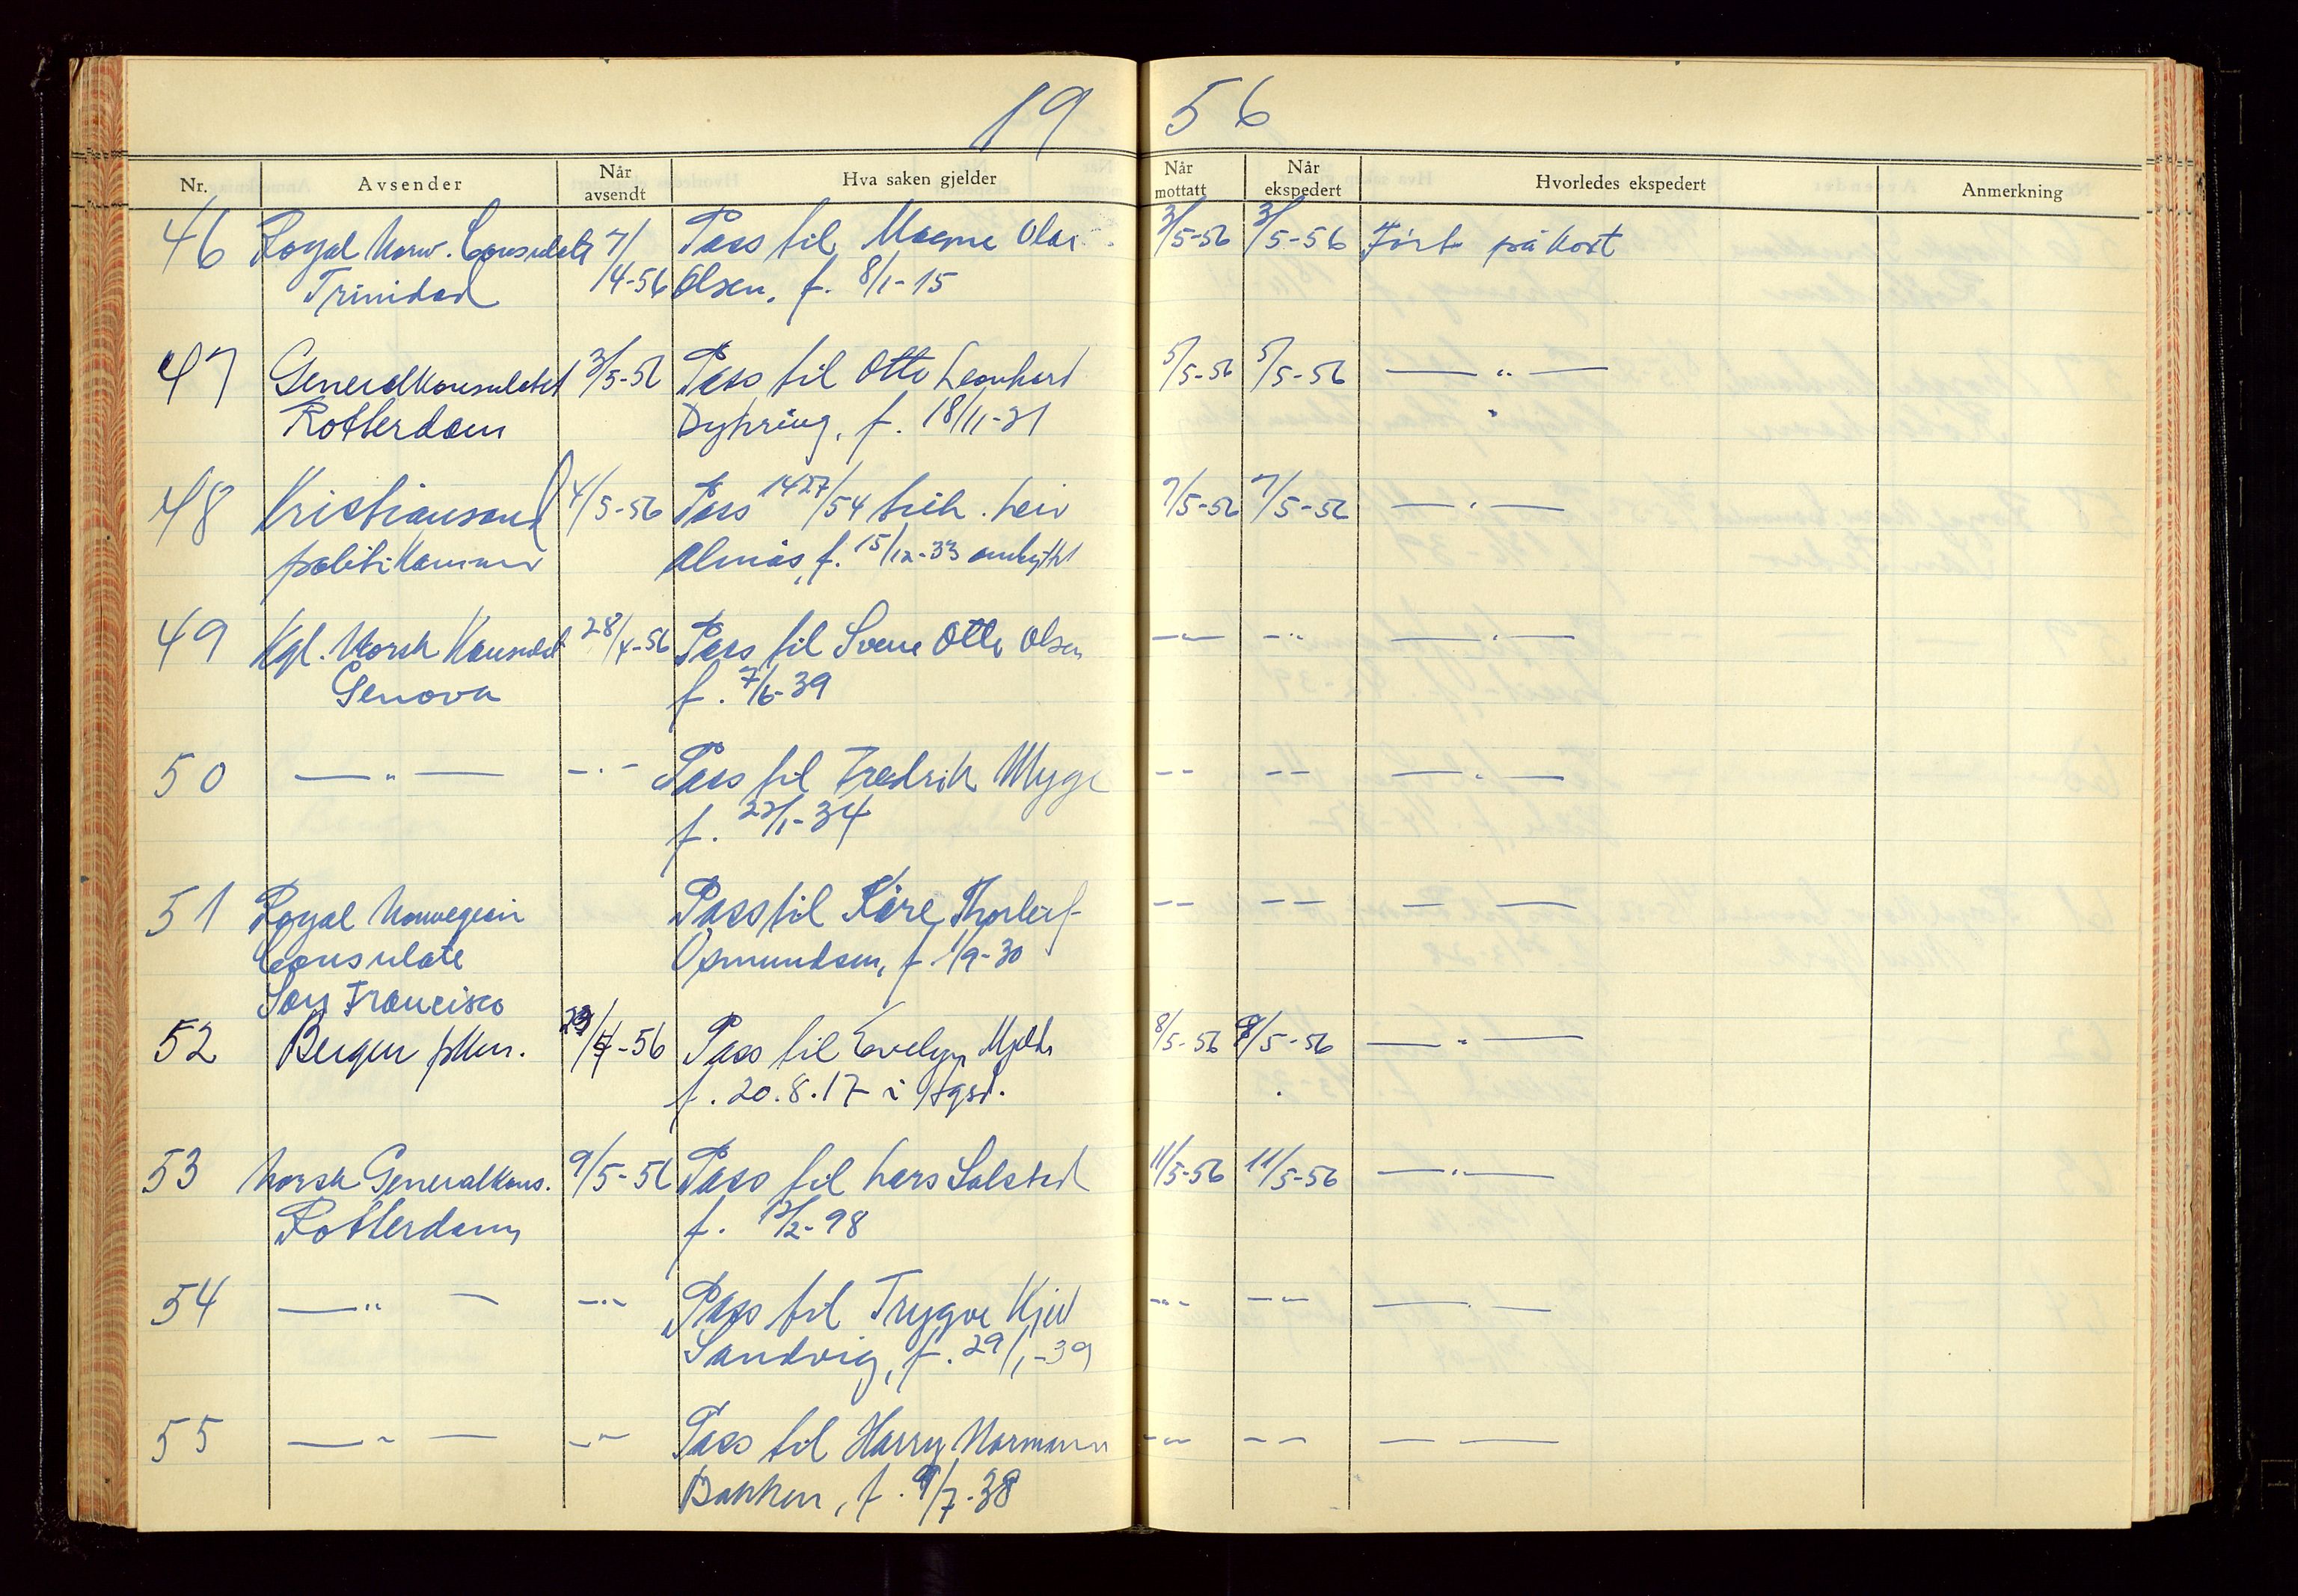 19 56
Nr. Avsender Når avsendt Hva saken gjelder Når mottatt Når ekspedert Hvorledes ekspedert Anmerkning
46 Royal Norw. Consulate 7/ Pass til Magne Olai 3/5-56 3/5-56 Ført på kort
Trinidad /4-56 Olsen, f. 8/1-15
47 Generalkonsulatet 3/5-56 Pass til Otto Leonhard 5/5-56 5/5-56 — " —
Rotterdam Dyhring, f. 18/11-31
48 Kristiansand 4/5-56 Pass 1427/54 tilh. Leiv 7/5-56 7/5-56 — " —
politikammer Almås, f. 15/12-33 ombyttet
49 Kgl. Norsk Konsulat 28/4-56 Pass til Svene Otto Olsen — " — - " - — " —
Genova f. 7/6-39
50 — " — - " - Pass til Fredrik Mygge - - - - — " —
f. 22/1-34
51 Royal Norwegian Pass til Kåre Thorleif - - - - — —
Consulate Osmundsen, f. 1/9-30
San Francisco
52 Bergen pkm. /4-56 Pass til Evelyn Mjelde 8/5-56 8/5-56 — " —
f. 20.8.17 i
53 Norsk Generalkons. 9/5-56 Pass til Lars Salsted 11/5-56 11/5-56 — " —
Rotterdam f. /2-98
54 — " — - " - Pass til Trygve Kjell - " - - - — " —
Sandvig, f. 29/1-39
55 — " — - " - Pass til Harry Normann - " - - - — —
Bakken, f. 9/7-38